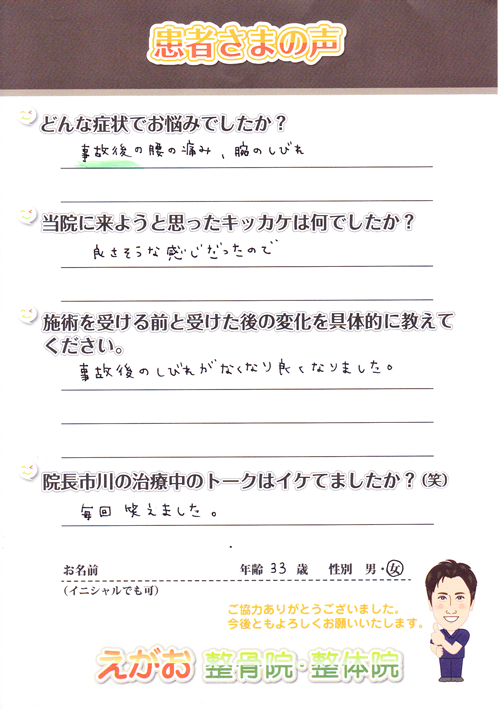 患者さまの声
どんな症状でお悩みでしたか？
事故後の腰の痛み、腕のしびれ
当院に来ようと思ったキッカケは何でしたか？
良さそうな感じだったので
施術を受ける前と受けた後の変化を具体的に教えて
ください。
事故後のしびれがなくなり良くなりました。
院長市川の治療中のトークはイケてましたか？（笑）
毎回 笑えました。
お名前 年齢 33 歳 性別 男・女
（イニシャルでも可）
ご協力ありがとうございました。
今後ともよろしくお願いいたします。
えがお 整骨院・整体院